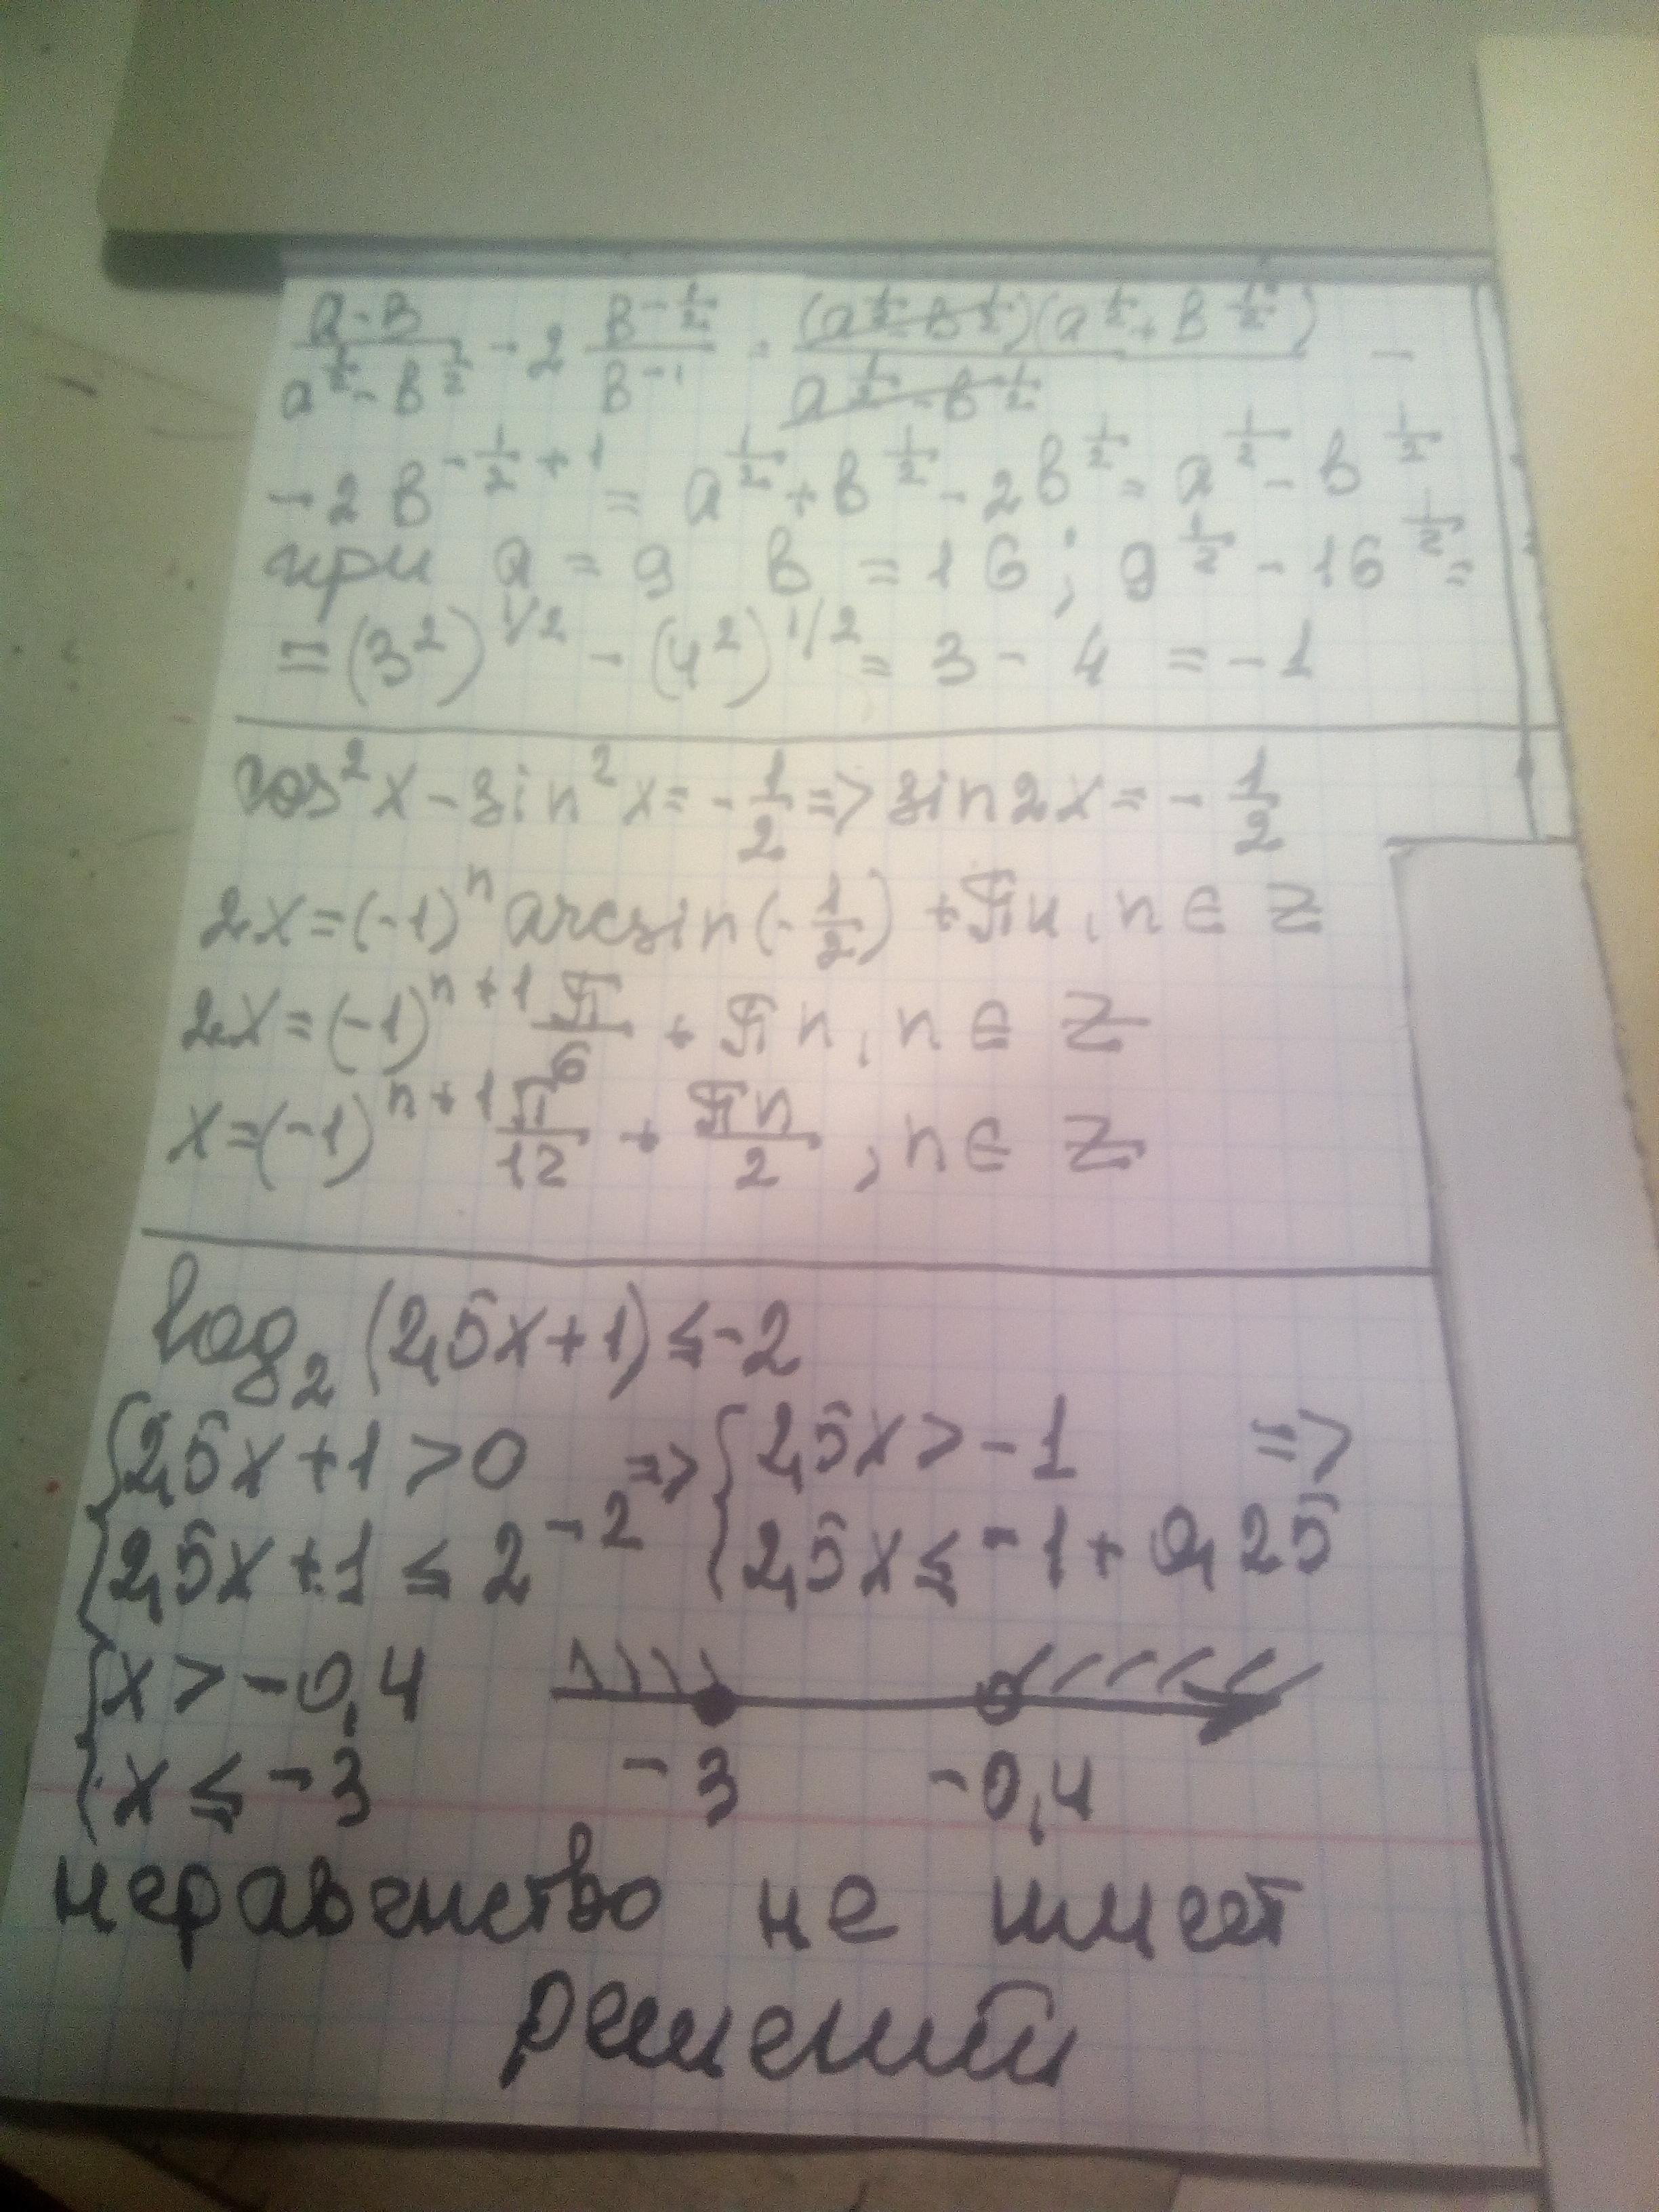 (a-в)/(a^(1/2)-в^(1/2)) - 2 в^(-1/2)/в^(-1) = (a^(1/2)-в^(1/2))(a^(1/2)+в^(1/2))/(a^(1/2)-в^(1/2)) -
-2в^(-1/2+1) = a^(1/2)+в^(1/2)-2в^(1/2) = a^(1/2)-в^(1/2)
при a=9 в=16; 9^(1/2)-16^(1/2)=
=(3²)^(1/2)-(4²)^(1/2)=3-4=-1
cos²x-sin²x=-1/2=>sin2x=-1/2
2x=(-1)^n arcsin(-1/2)+πn, n∈Z
2x=(-1)^(n+1) π/6+πn, n∈Z
x=(-1)^(n+1) π/12+πn/2, n∈Z
log₂(2,5x+1)≤-2
{2,5x+1>0 => {2,5x>-1 =>
{2,5x+1≤2^(-2) {2,5x≤-1+0,25
{x>-0,4
{x≤-3 -3 -0,4
неравенство не имеет
решений